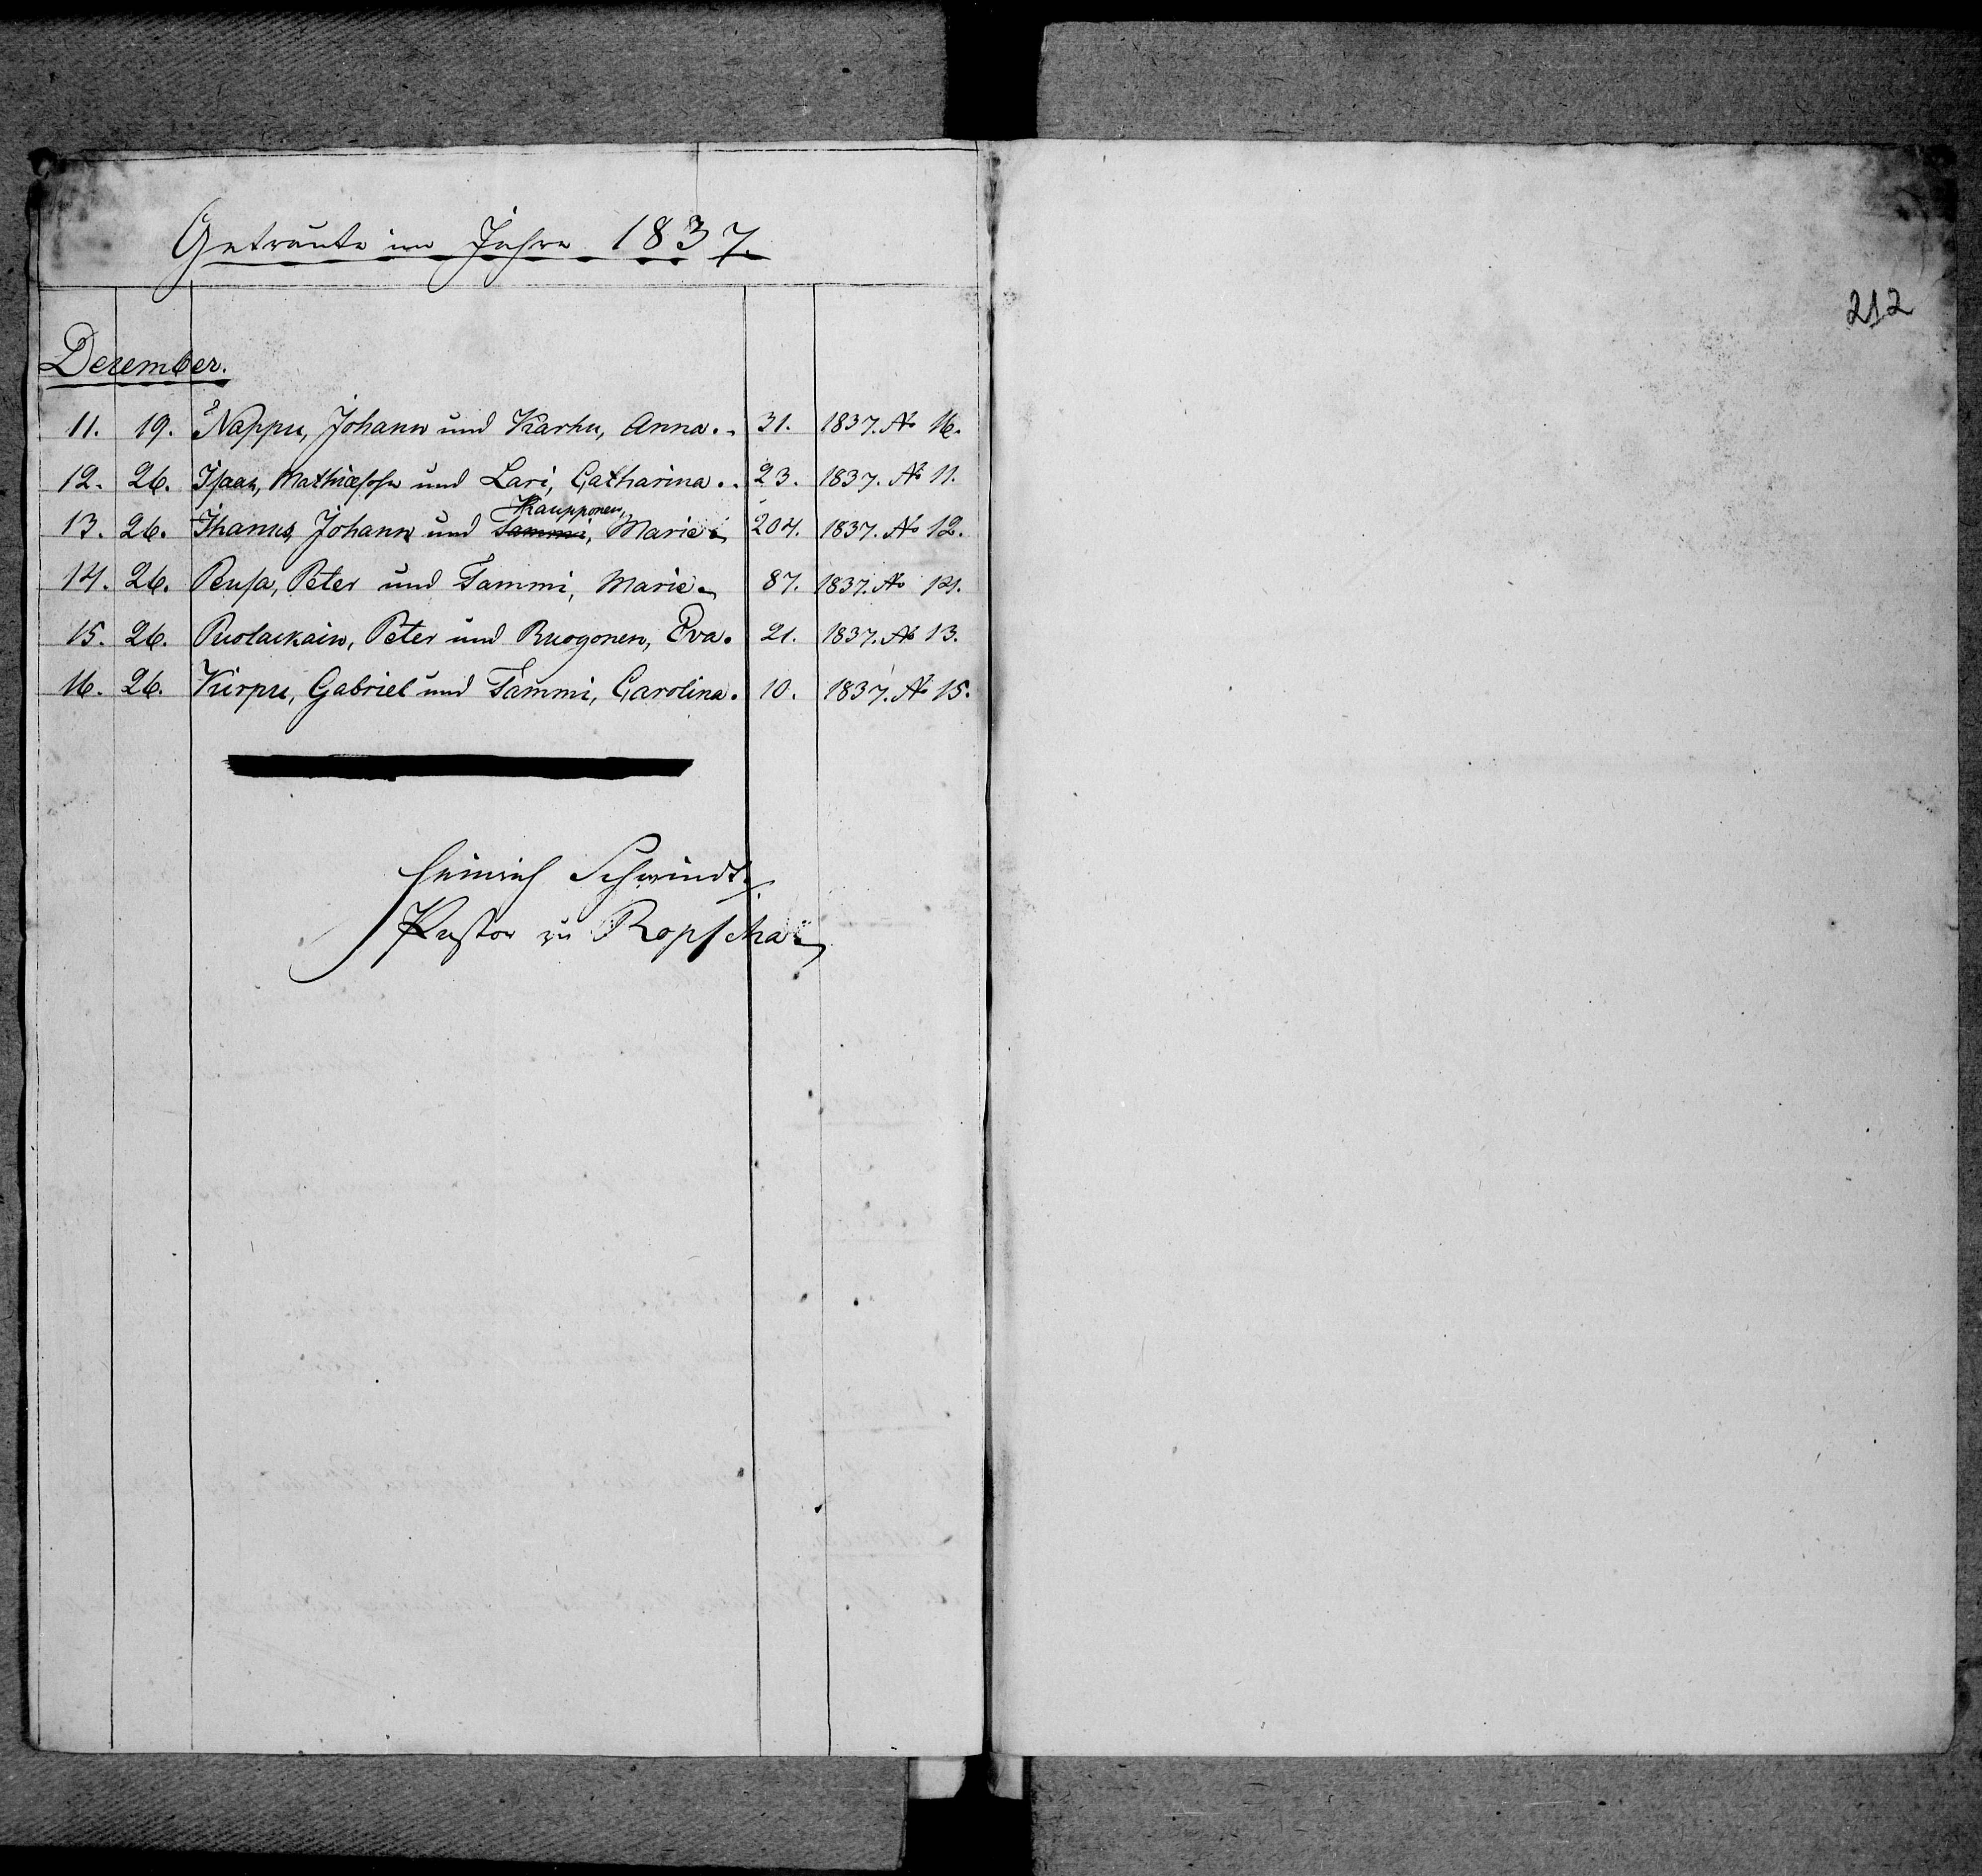 Getraute im Jahre 1837.
212
Dezember.
11. 19. Nappu, Johann und Karhu, Anna. 31. 1837. No 16.
12. 26. Isaak, Mathiessohn und Lari, Catharina. 23. 1837. No 11.
Kaupponen,
13. 26. Ihanus, Johann und Tammi, Marie. 207. 1837. No 12.
14. 26. Peusa, Peter und Tammi, Marie. 87. 1837. No 14.
15. 26. Puolakain, Peter und Ruogonen, Eva. 21. 1837. No 13.
16. 26. Kirpu, Gabriel und Tammi, Carolina. 10. 1837. No 15.
Heinrich Schwindt,
Pastor zu Ropscha